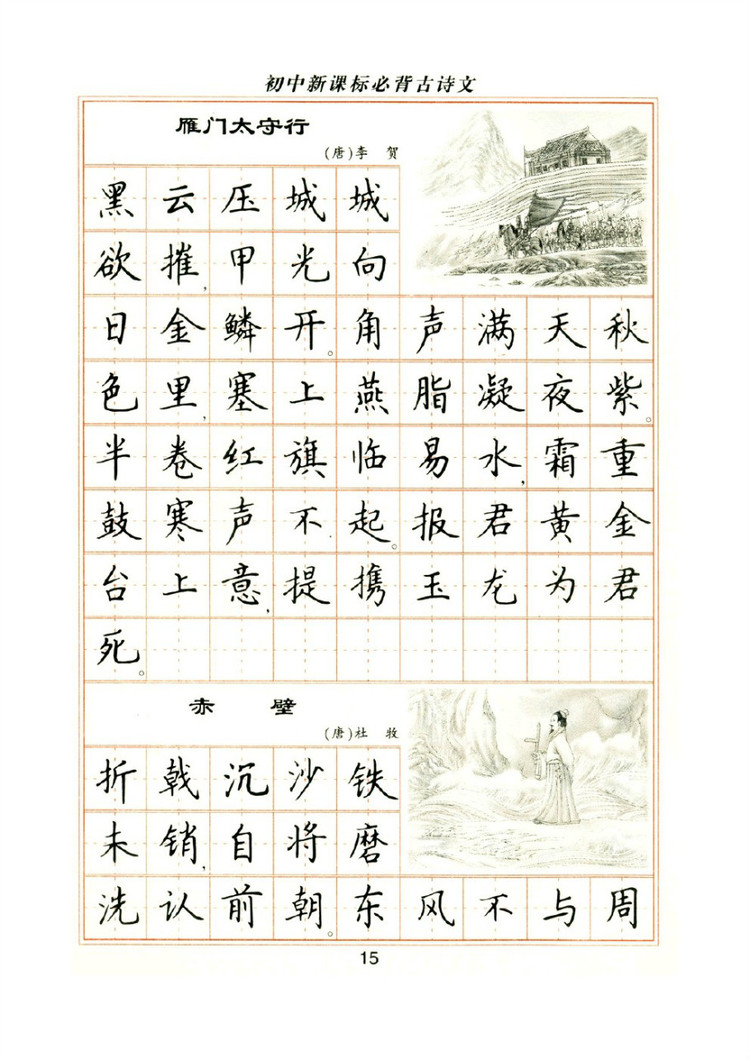 初中新课标必背古诗文
雁门太守行
(唐)李 贺
黑云压城城
欲摧,甲光向
日金鳞开。角声满天秋
色里,塞上燕脂凝夜紫。
半卷红旗临易水,霜重
鼓寒声不起。报君黄金
台上意,提携玉龙为君
死。
赤 壁
(唐)杜 牧
折戟沉沙铁
未销,自将磨
洗认前朝。东风不与周
15